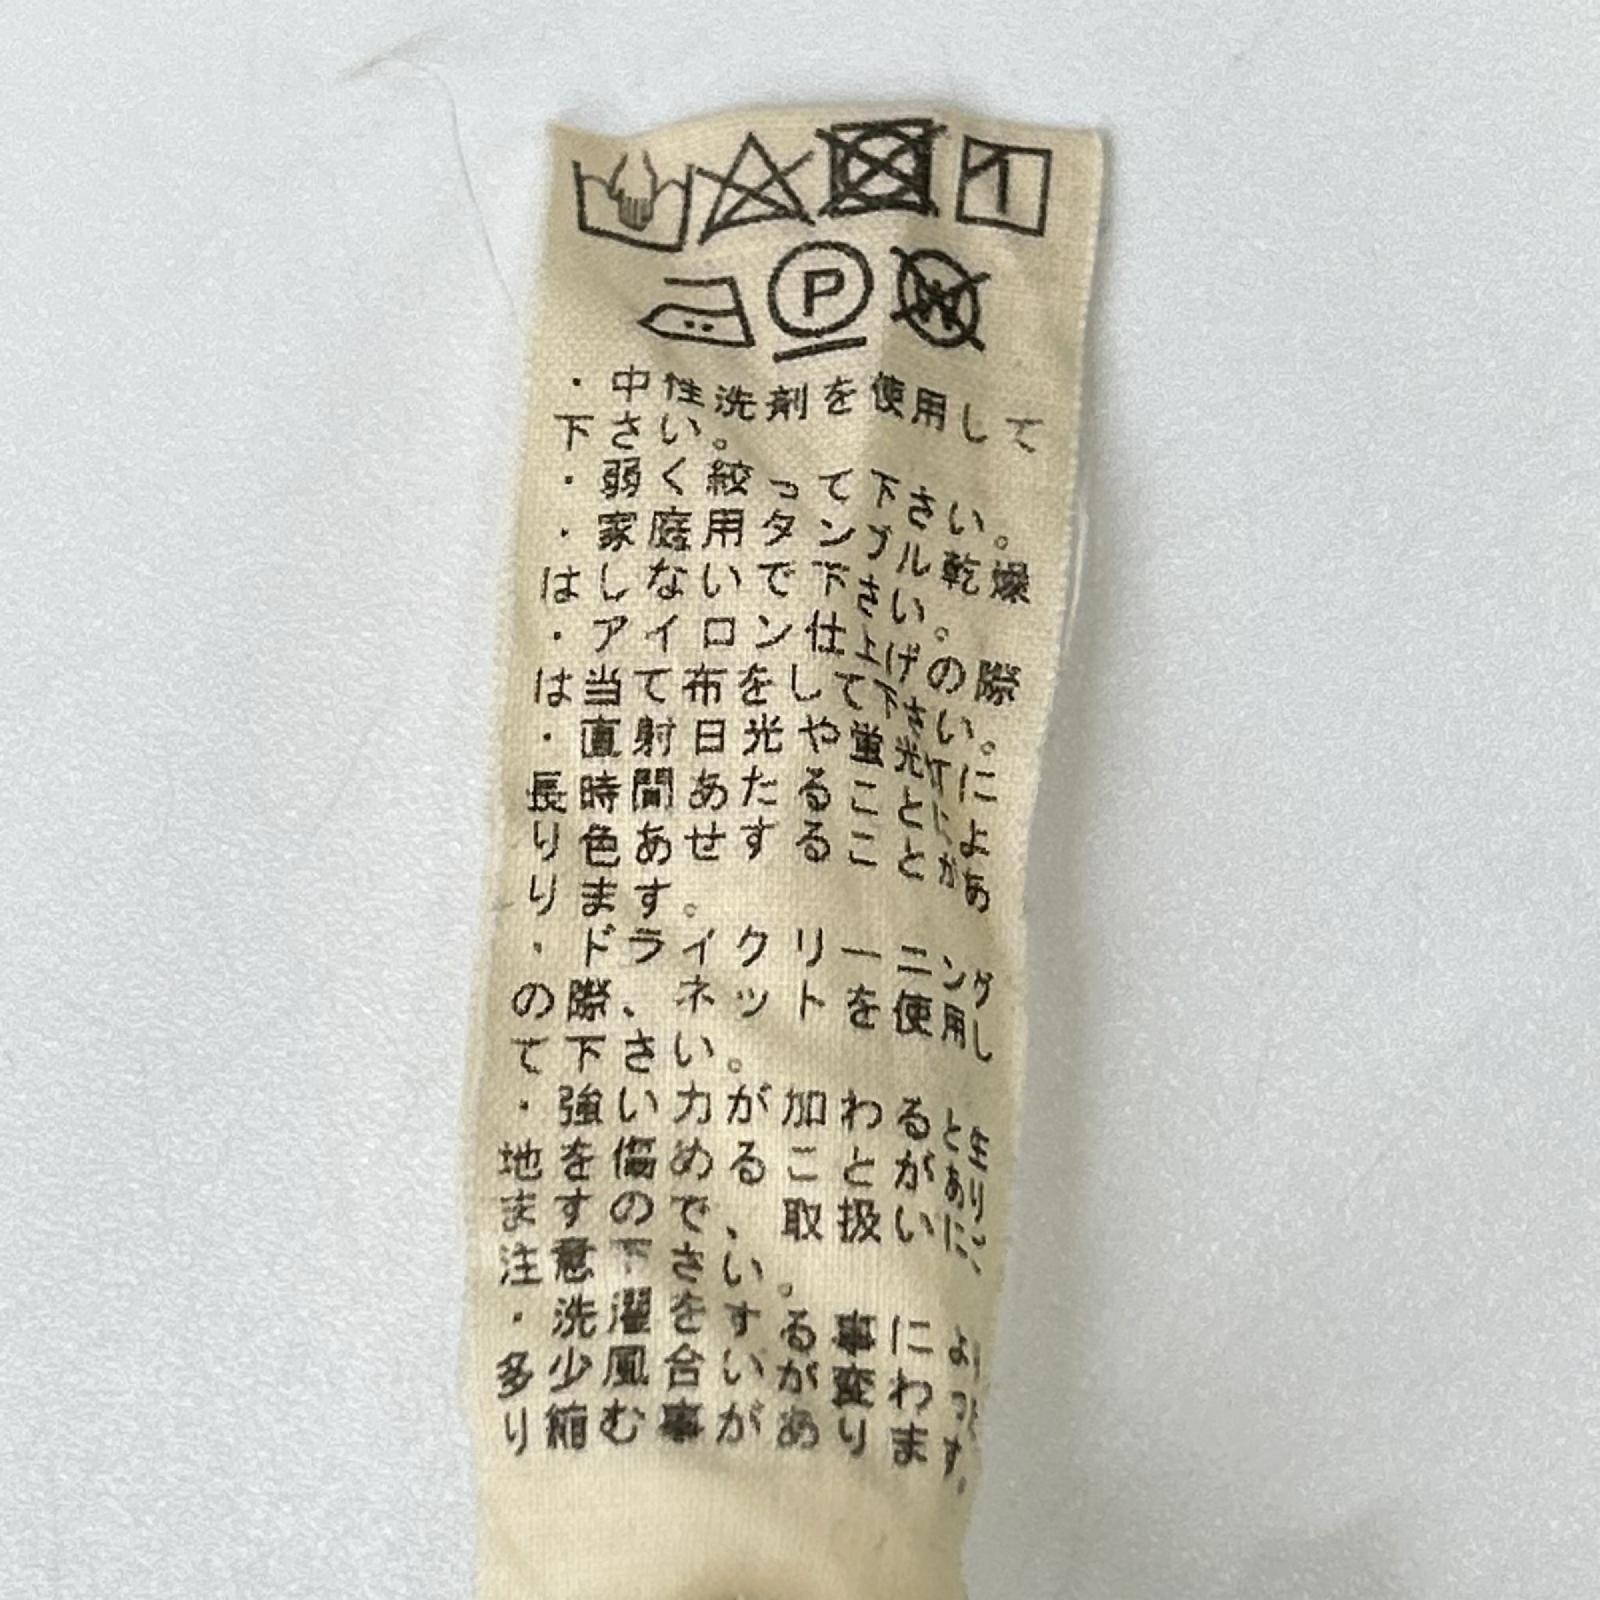 P
W
・中性洗剤を使用して
下さい。
・弱く絞って下さい。
・家庭用タンブル乾燥
はしないで下さい。
・アイロン仕上げの際
は当て布をして下さい。
・直射日光や蛍光灯に
長時間あたることによ
り色あせすることがあ
ります。
・ドライクリーニング
の際、ネットを使用し
て下さい。
・強い力が加わると生
地を傷めることがあり
ますので、取扱いに
注意下さい。
・洗濯をする事によ
多少風合いが変わっ
り縮む事があります。